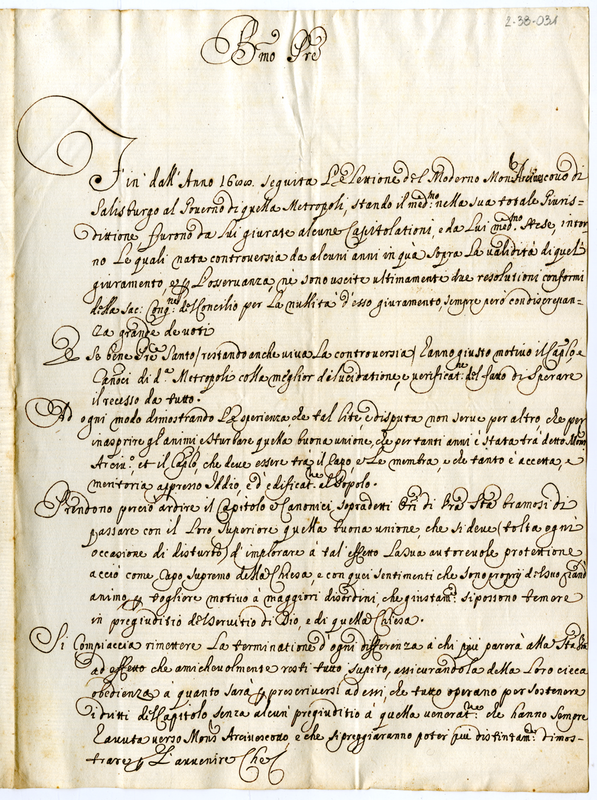 2-38-031
B.mo Pre
Fin dall'Anno 16 seguita L'elettione del Moderno Mons. Arciuescouo di
Salisburgo al Gouerno di quella Metropoli, stando il med.mo nella sua totale Giuris=
dittione furono da lui giurate alcune Capitolationi, e da Lui med.mo stese, intor
no Le quali nata controuersia da alcuni anni in quà sopra La ualidità di quel
giuramento, e L'osseruanza, ne sono uscite ultimamente due resolutioni conformi
della Sac: Cong.ne del Concilio per La nullità d'esso giuramento, sempre però con discrepan=
za grande de uoti
E Se bene P.re Santo (restando anche uiua La controuersia) hanno giusto motiuo il Caplo, e
Canoci di d.a Metropoli colla meglior dilucidatione, e uerificat.ne del fatto di Sperare
il recesso da tutto.
Ad ogni modo dimostrando L'esperienza, che tal lite e disputa non serue per altro, che per
inasprire gl'animi e sturbare quella buona unione, che per tanti anni è stata trà detto Mons
Arciu.o, et il Caplo, che deue essere trà il Capo, e Le membra, e che tanto è accetta, e
meritoria appresso Iddio, ed edificat.ne al Popolo.
Prendono perciò ardire il Capitolo e Canonici sopradetti Ori di Vra Stà bramosi di
passare con il Loro Superiore quella buona unione, che si deue (tolta ogni
occasione di disturbo) d'implorare à tal'effetto La sua autoreuole protettione
acciò come Capo Supremo della Chiesa, e con quei sentimenti che sono proprij del suo
animo, togliere motiuo à maggiori disordini che giustam.te si possono temere
in pregiuditio del seruitio di Dio, e di quella Chiesa.
Si Compiaccia rimettere La terminatione d'ogni differenza à chi più parerà alla Stà
ad effetto che amicheuolmente resti tutto sopito, assicurandola della Loro cieca
obedienza à quanto sarà prescriuersi ad essi, che tutto operano per sostenere
i dritti del Capitolo senza alcun' pregiuditio à quella uenerat.ne che hanno sempre
hauuta uerso Mons. Arciuescouo e che si preggiaranno poter più distintam.te dimos=
trare L'auuenire Che